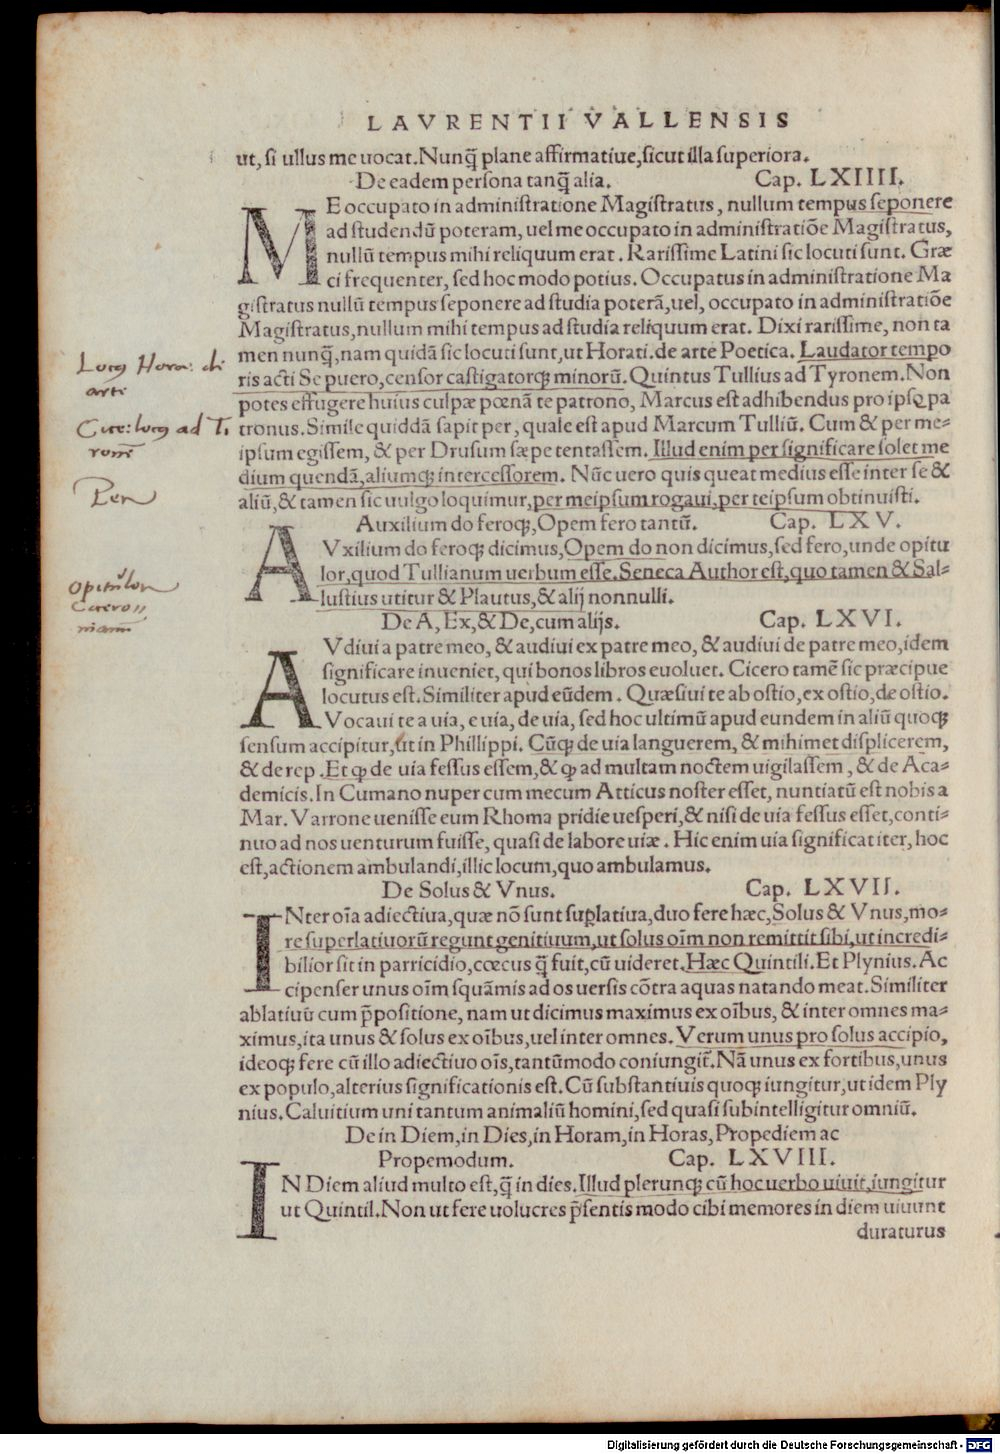 LAVRENTII VALLENSIS
ut, si ullus me uocat. Nunq̃ plane affirmatiue, sicut illa superiora.
De eadem persona tanq̃ alia. Cap. LXIIII.
ME occupato in administratione Magistratus, nullum tempus seponere
ad studendũ poteram, uel me occupato in administratiõe Magistratus,
nullũ tempus mihi reliquum erat. Rarissime Latini sic locuti sunt. Græ
ci frequenter, sed hoc modo potius. Occupatus in administratione Ma
gistratus nullũ tempus seponere ad studia poterã, uel, occupato in administratiõe
Magistratus, nullum mihi tempus ad studia reliquum erat. Dixi rarissime, non ta
men nunq̃, nam quidã sic locuti sunt, ut Horati. de arte Poetica. Laudator tempo
ris acti Se puero, censor castigatorq; minorũ. Quintus Tullius ad Tyronem. Non
potes effugere huius culpæ pœnã te patrono, Marcus est adhibendus pro ipsq; pa
tronus. Simile quiddã sapit per, quale est apud Marcum Tulliũ. Cum & per me-
ipsum egissem, & per Drusum sæpe tentassem. Illud enim per significare solet me
dium quendã, aliumq; intercessorem. Nũc uero quis queat medius esse inter se &
aliũ, & tamen sic uulgo loquimur, per meipsum rogaui, per teipsum obtinuisti.
Auxilium do feroq;, Opem fero tantũ. Cap. LXV.
AVxilium do feroq; dicimus, Opem do non dicimus, sed fero, unde opitu
lor, quod Tullianum uerbum esse. Seneca Author est, quo tamen & Sal-
lustius utitur & Plautus, & alij nonnulli.
De A, Ex, & De, cum alijs. Cap. LXVI.
AVdiui a patre meo, & audiui ex patre meo, & audiui de patre meo, idem
significare inueniet, qui bonos libros euoluet. Cicero tamẽ sic præcipue
locutus est. Similiter apud eũdem. Quæsiui te ab ostio, ex ostio, de ostio.
Vocaui te a uia, e uia, de uia, sed hoc ultimũ apud eundem in aliũ quoq;
sensum accipitur, ut in Phillippi. Cũq; de uia languerem, & mihimet displicerem,
& de rep. Et q; de uia fessus essem, & q; ad multam noctem uigilassem, & de Aca-
demicis. In Cumano nuper cum mecum Atticus noster esset, nuntiatũ est nobis a
Mar. Varrone uenisse eum Rhoma pridie uesperi, & nisi de uia fessus esset, conti-
nuo ad nos uenturum fuisse, quasi de labore uiæ. Hic enim uia significat iter, hoc
est, actionem ambulandi, illic locum, quo ambulamus.
De Solus & Vnus. Cap. LXVII.
INter oĩa adiectiua, quæ nõ sunt sup̱latiua, duo fere hæc, Solus & Vnus, mo-
re superlatiuorũ regunt genitiuum, ut solus oĩm non remittit sibi, ut incredi-
bilior sit in parricidio, cœcus q̃ fuit, cũ uideret. Hæc Quintili. Et Plynius. Ac
cipenser unus oĩm squãmis ad os uersis cõtra aquas natando meat. Similiter
ablatiuũ cum p̃positione, nam ut dicimus maximus ex oĩbus, & inter omnes ma-
ximus, ita unus & solus ex oĩbus, uel inter omnes. Verum unus pro solus accipio,
ideoq; fere cũ illo adiectiuo oĩs, tantũmodo coniungit̃. Nã unus ex fortibus, unus
ex populo, alterius significationis est. Cũ substantiuis quoq; iungitur, ut idem Ply
nius. Caluitium uni tantum animaliũ homini, sed quasi subintelligitur omniũ.
De in Diem, in Dies, in Horam, in Horas, Propediem ac
Propemodum. Cap. LXVIII.
IN Diem aliud multo est, q̃ in dies. Illud plerunq; cũ hoc uerbo uiuit, iungitur
ut Quintil. Non ut fere uolucres p̃sentis modo cibi memores in diem uiuunt
duraturus
Locus Hora: de
arte
Cice: locus ad Ti
ronẽ
Per
Opitulor
Cicero
nianũ
Digitalisierung gefördert durch die Deutsche Forschungsgemeinschaft - DFG